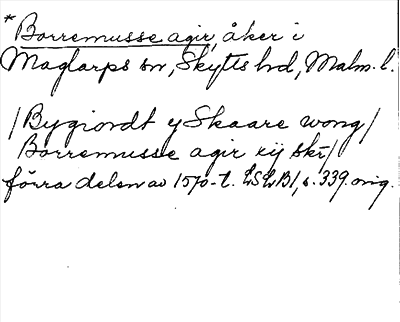 * Borremusse agir, åker i
Maglarps sn, Skytts hd, Malm. l.
/Bygiordt y Skaare wong/
Borremusse agir xij skr/
förra delen av 1570-t. LSLB1, s. 339. orig.